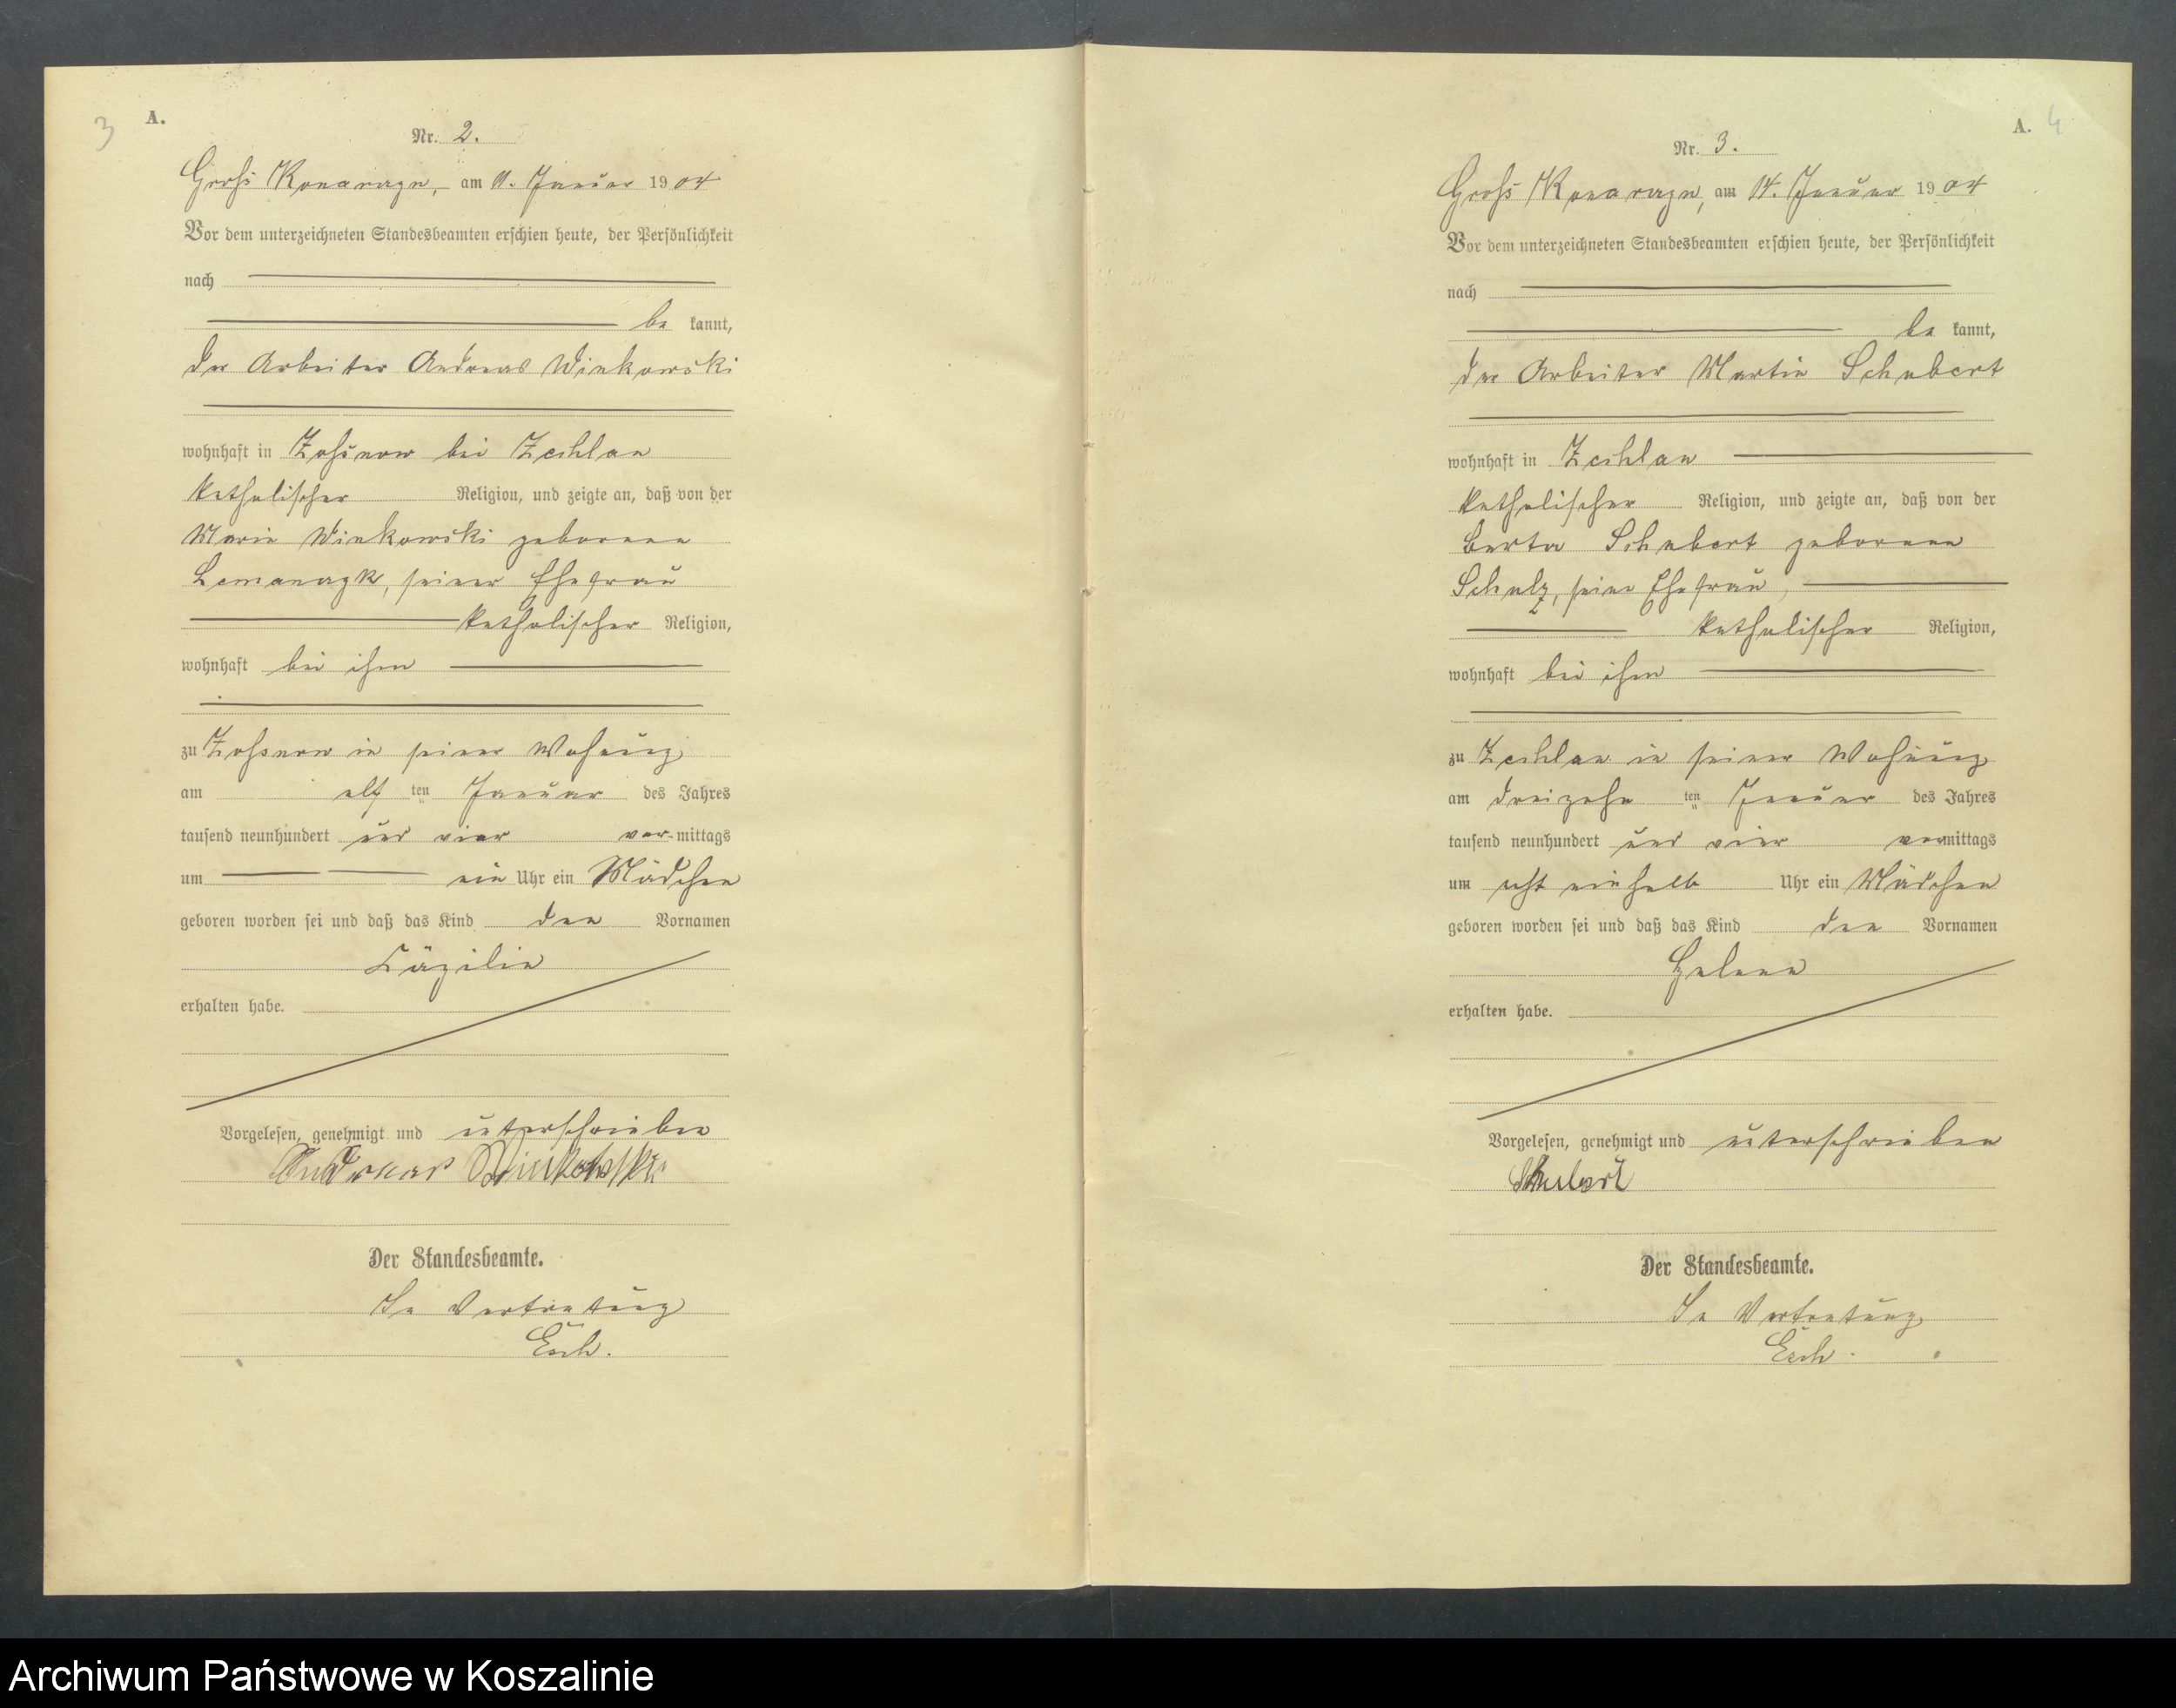 3
A.
Nr. 2.
Groß Konarczyn, am 11. Januar 1904
Vor dem unterzeichneten Standesbeamten erschien heute, der Persönlichkeit
nach
be kannt,
der Arbeiter Andreas Winkowski
wohnhaft in bei Zechlau
katholischer Religion, und zeigte an, daß von der
Marie Winkowski geborenen
seiner Ehefrau
katholischer Religion,
wohnhaft bei ihm
zu in seiner Wohnung
am elf ten Januar des Jahres
tausend neunhundert und vier vor-mittags
um ein Uhr ein Mädchen
geboren worden sei und daß das Kind den Vornamen
Cäzilie
erhalten habe.
Vorgelesen, genehmigt und unterschrieben
Andreas Winkowski
Der Standesbeamte.
In Vertretung
Esch.
A. 4
Nr. 3.
Groß Konarczyn, am 14. Januar 1904
Vor dem unterzeichneten Standesbeamten erschien heute, der Persönlichkeit
nach
be kannt,
der Arbeiter Martin Schubert
wohnhaft in Zechlau
katholischer Religion, und zeigte an, daß von der
Berta Schubert geborenen
Schulz, seine Ehefrau,
katholischer Religion,
wohnhaft bei ihm
zu Zechlau in seiner Wohnung
am dreizehn ten Januar des Jahres
tausend neunhundert und vier vormittags
um acht einhalb Uhr ein Mädchen
geboren worden sei und daß das Kind den Vornamen
Helene
erhalten habe.
Vorgelesen, genehmigt und unterschrieben
Schubert
Der Standesbeamte.
In Vertretung
Esch.
Archiwum Państwowe w Koszalinie